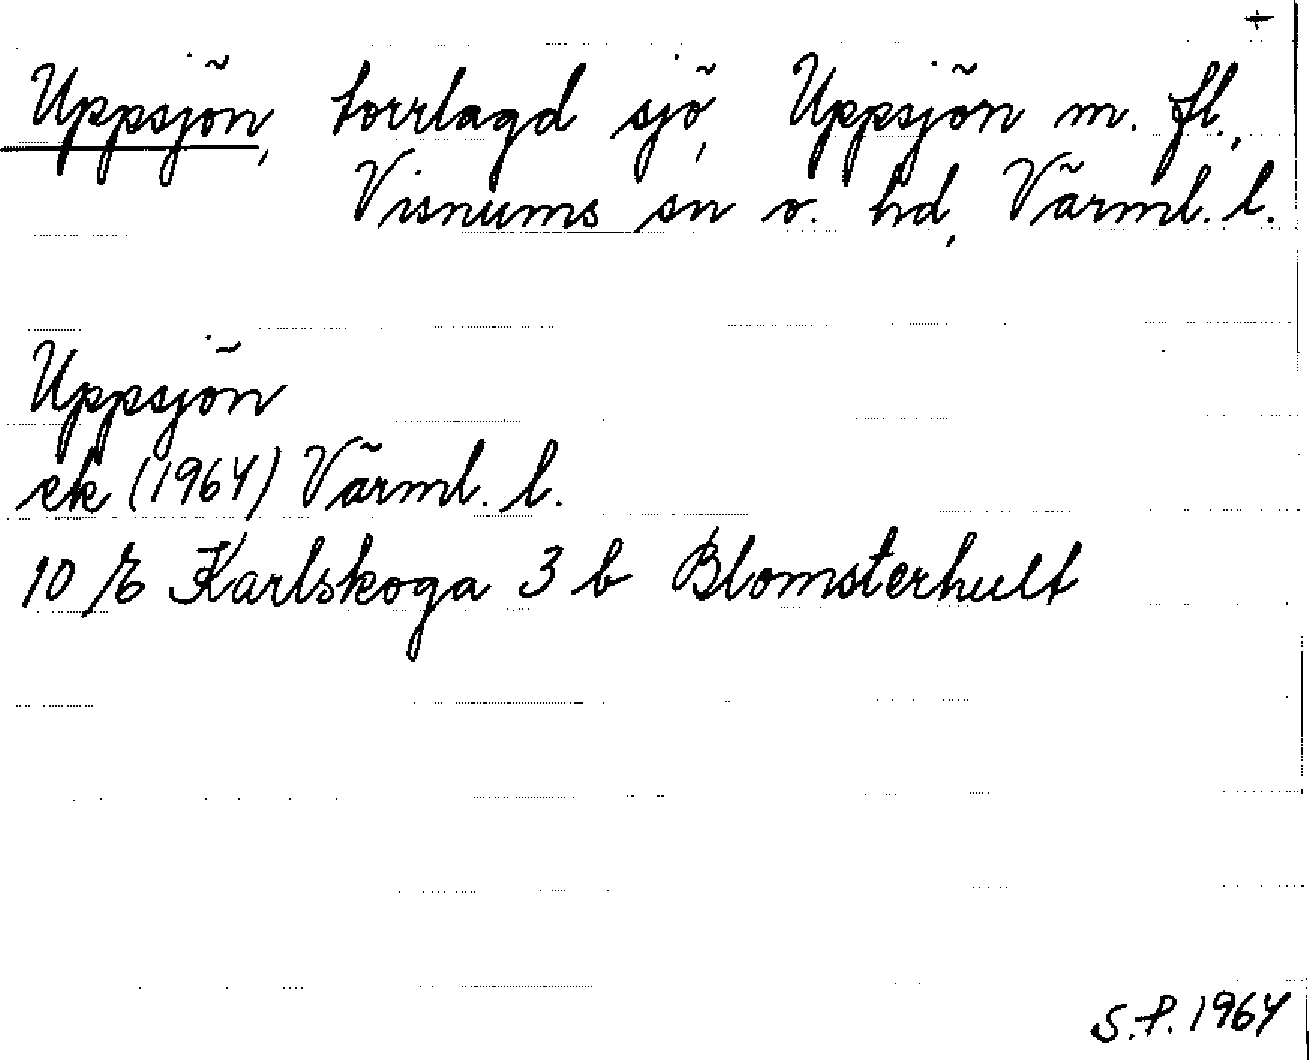 +
Uppsjön, torrlagd sjö, Uppsjön m. fl.,
Visnums sn o. hd, Värml. l.
Uppsjön
ek (1964) Värml. l.
10 E Karlskoga 3 b Blomsterhult
S.P. 1964